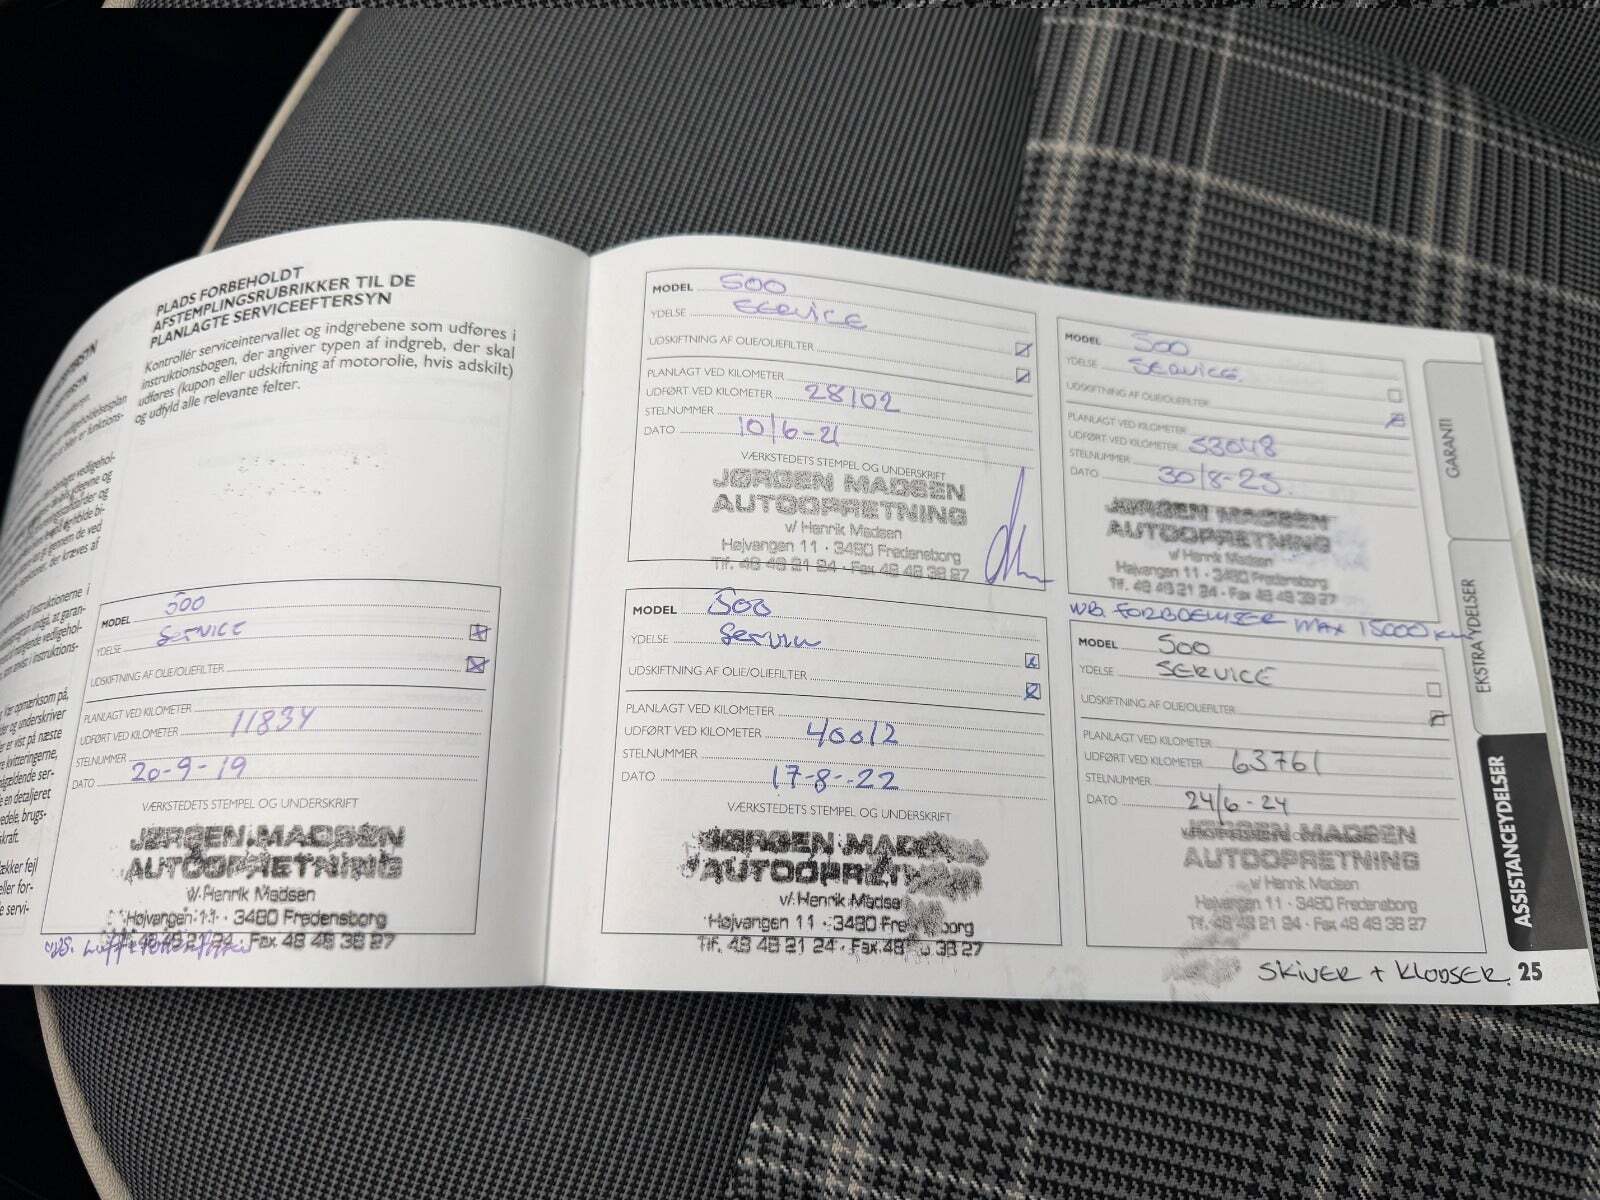 PLADS FORBEHOLDT
AFSTEMPLINGSRUBRIKKER TIL DE
PLANLAGTE SERVICEEFTERSYN
Kontrollér serviceintervallet og indgrebene som udføres i
instruktionsbogen, der angiver typen af indgreb, der skal
udføres (kupon eller udskiftning af motorolie, hvis adskilt)
og udfyld alle relevante felter.
MODEL 500
YDELSE SERVICE
UDSKIFTNING AF OLIE/OLIEFILTER
PLANLAGT VED KILOMETER
UDFØRT VED KILOMETER 11834
STELNUMMER
DATO 20-9-19
VÆRKSTEDETS STEMPEL OG UNDERSKRIFT
JØRGEN MADSEN
AUTOOPRETNING
v/ Henrik Madsen
Højvangen 11 · 3480 Fredensborg
48 48 21 24 · Fax 48 48 38 27
MODEL 500
YDELSE SERVICE
UDSKIFTNING AF OLIE/OLIEFILTER
PLANLAGT VED KILOMETER
UDFØRT VED KILOMETER 28102
STELNUMMER
DATO 10/6-21
VÆRKSTEDETS STEMPEL OG UNDERSKRIFT
JØRGEN MADSEN
AUTOOPRETNING
v/ Henrik Madsen
Højvangen 11 · 3480 Fredensborg
Tlf. 48 48 21 24 · Fax 48 48 38 27
MODEL 500
YDELSE Service
UDSKIFTNING AF OLIE/OLIEFILTER
PLANLAGT VED KILOMETER
UDFØRT VED KILOMETER 40012
STELNUMMER
DATO 17-8-22
VÆRKSTEDETS STEMPEL OG UNDERSKRIFT
JØRGEN MADSEN
AUTOOPRETNING
v/ Henrik Madse
Højvangen 11 · 3480 Fre borg
Tlf. 48 48 21 24 · Fax 48 38 27
MODEL 500
YDELSE SERVICE
UDSKIFTNING AF OLIE/OLIEFILTER
PLANLAGT VED KILOMETER
UDFØRT VED KILOMETER 53048
STELNUMMER
DATO 30/8-23
JØRGEN MADSEN
AUTOOPRETNING
v/ Henrik Madsen
Højvangen 11 · 3480 Fredensborg
Tlf. 48 48 21 24 · Fax 48 48 38 27
MAX 15000 km
MODEL 500
YDELSE SERVICE
UDSKIFTNING AF OLIE/OLIEFILTER
PLANLAGT VED KILOMETER
UDFØRT VED KILOMETER 63761
STELNUMMER
DATO 24/6-24
JØRGEN MADSEN
AUTOOPRETNING
v/ Henrik Madsen
Højvangen 11 · 3480 Fredensborg
Tlf. 48 48 21 24 · Fax 48 48 38 27
SKIVER + KLODSER.
GARANTI
EKSTRA YDELSER
ASSISTANCEYDELSER
25